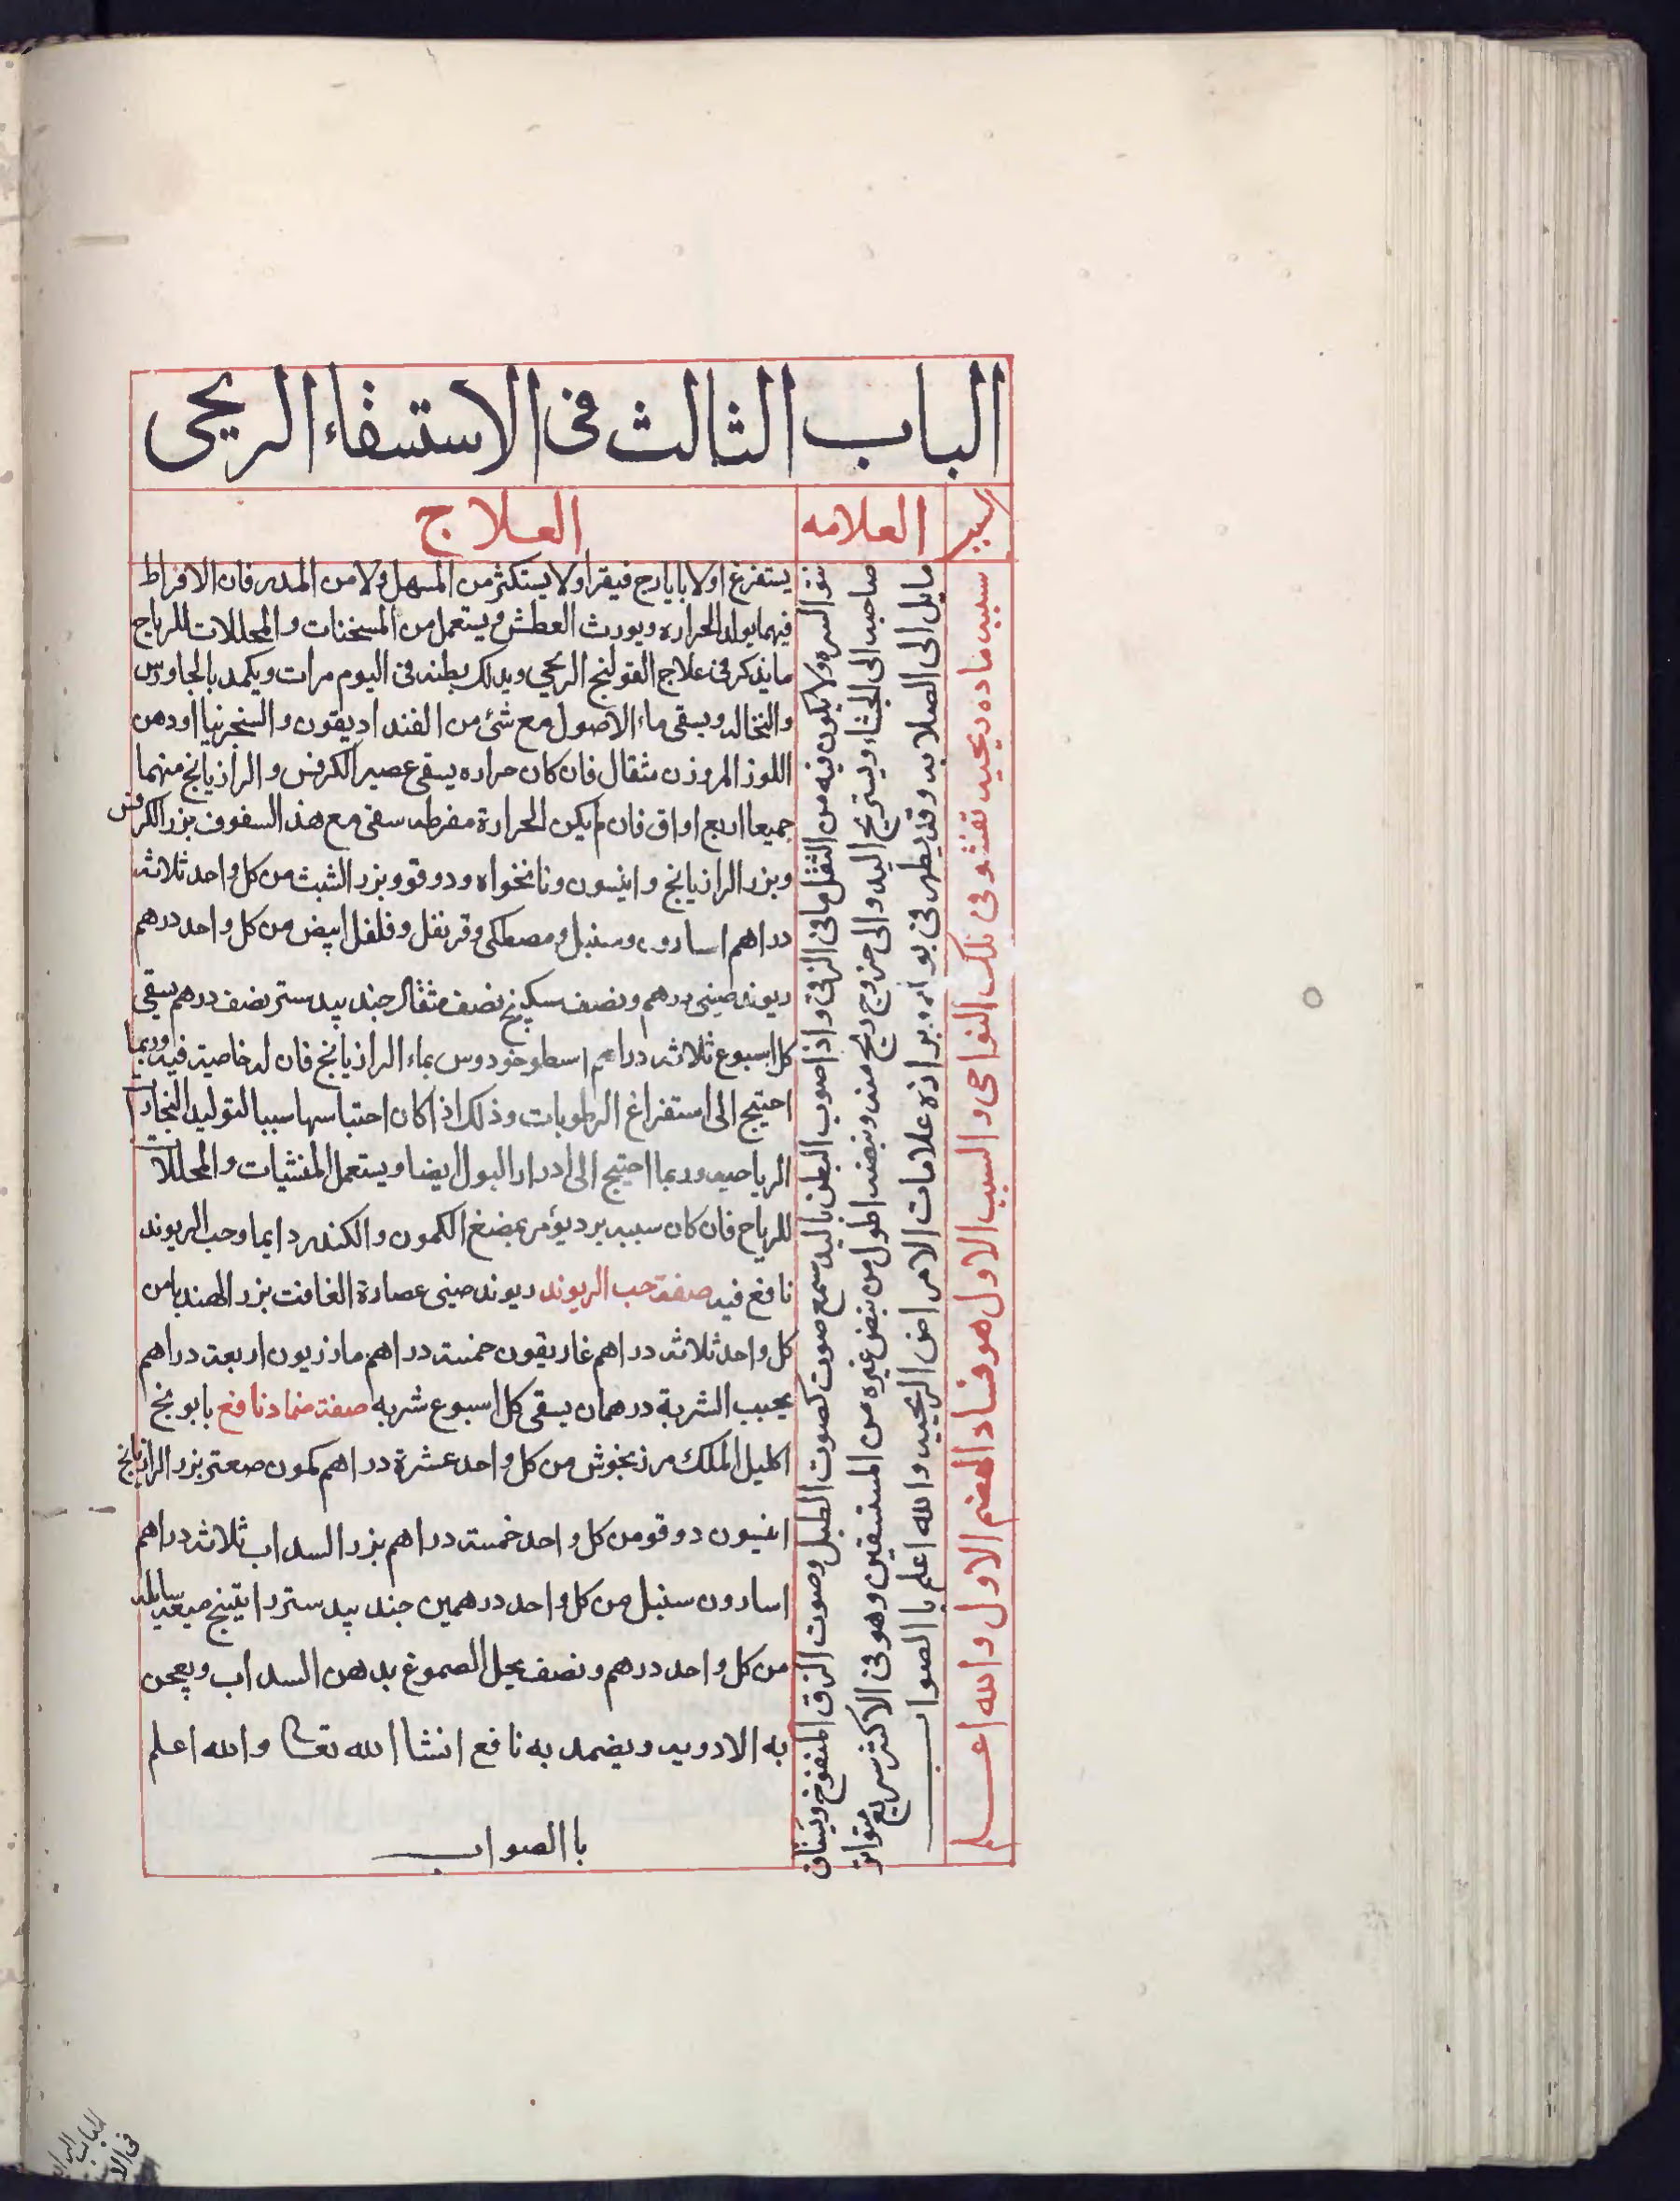 الباب الثالث فى الاستسقاء الريحى
السبب
العلامه
العلاج
سببه ماده ريحيه تفشو فى تلك النواحى والسبب الاول هو فساد الهضم الاول والله اعلم
نتؤ السره ولا يكون فيه من الثقل ما فى الزقى واذا ضرب البطن باليد سمع صوت كصوت الطبل وصوت الزق المنفوخ ويشتاق
صاحبه الى الجشاء ويستريح اليه والى خروج ريح منه ونبضه اطول من نبض غيره من المستسقين وهو فى الاكثر سريع متواتر
مايل الى الصلابه وقد يظهر فى بوله وبرازه علامات الامراض الريحيه والله اعلم باالصواب
يستفرغ اولا بايارج فيقرا ولا يستكثر من المسهل ولا من المدر فان الافراط
فيهما يولد الحراره ويورث العطش ويستعمل من المسخنات والمحللات للرياح
ما يذكر فى علاج القولنج الريحي ويدلك بطنه فى اليوم مرات ويكمد بالجاورس
والنخاله ويسقى ماء الاصول مع شئ من الفنداديقون والسنجرنيا اودهن
اللوز المر وزن مثقال فان كان حراره يسقى عصير الكرفس والرازيانج منهما
جميعا اربع اواق فان لم يكن الحرارة مفرطه سقى مع هذا السفوف بزر الكرفس
وبزر الرازيانج وانيسون ونانخواه ودوقو وبزر الشبث من كل واحد ثلاثه
دراهم اسارون وسنبل ومصطكى وقرنفل وفلفل ابيض من كل واحد درهم
ريوند صينى درهم ونصف سكبينج نصف مثقال جند بيد ستر نصف درهم يسقى
كل اسبوع ثلاثه دراهم اسطوخودوس بماء الرازيانج فان له خاصية فيه وربما
احتيج الى استفراغ الرطوبات وذلك اذا كان احتباسها سببا لتوليد البخارات
الرياحيه وربما احتيج الى ادرار البول ايضا ويستعمل المفشيات والمحللات
للرياح فان كان سببه برد يؤمر بمضغ الكمون والكندر دايما وحب الريوند
نافع فيه صفة حب الريوند ريوند صينى عصارة الغافت بزر الهندبا من
كل واحد ثلاثه دراهم غاريقون خمسه دراهم مازريون اربعه دراهم
يحبب الشربة درهمان يسقى كل اسبوع شربه صفة ضماد نافع بابونج
اكليل الملك مرزنجوش من كل واحد عشرة دراهم كمون صعتر بزر الرازيانج
انيسون دوقو من كل واحد خمسه دراهم بزر السداب ثلاثه دراهم
اسارون سنبل من كل واحد درهمين جند بيد ستر راتينج ميعه سايله
من كل واحد درهم ونصف يحل الصموغ بدهن السداب ويعجن
به الادويه ويضمد به نافع انشا الله تعالى والله اعلم
باالصواب